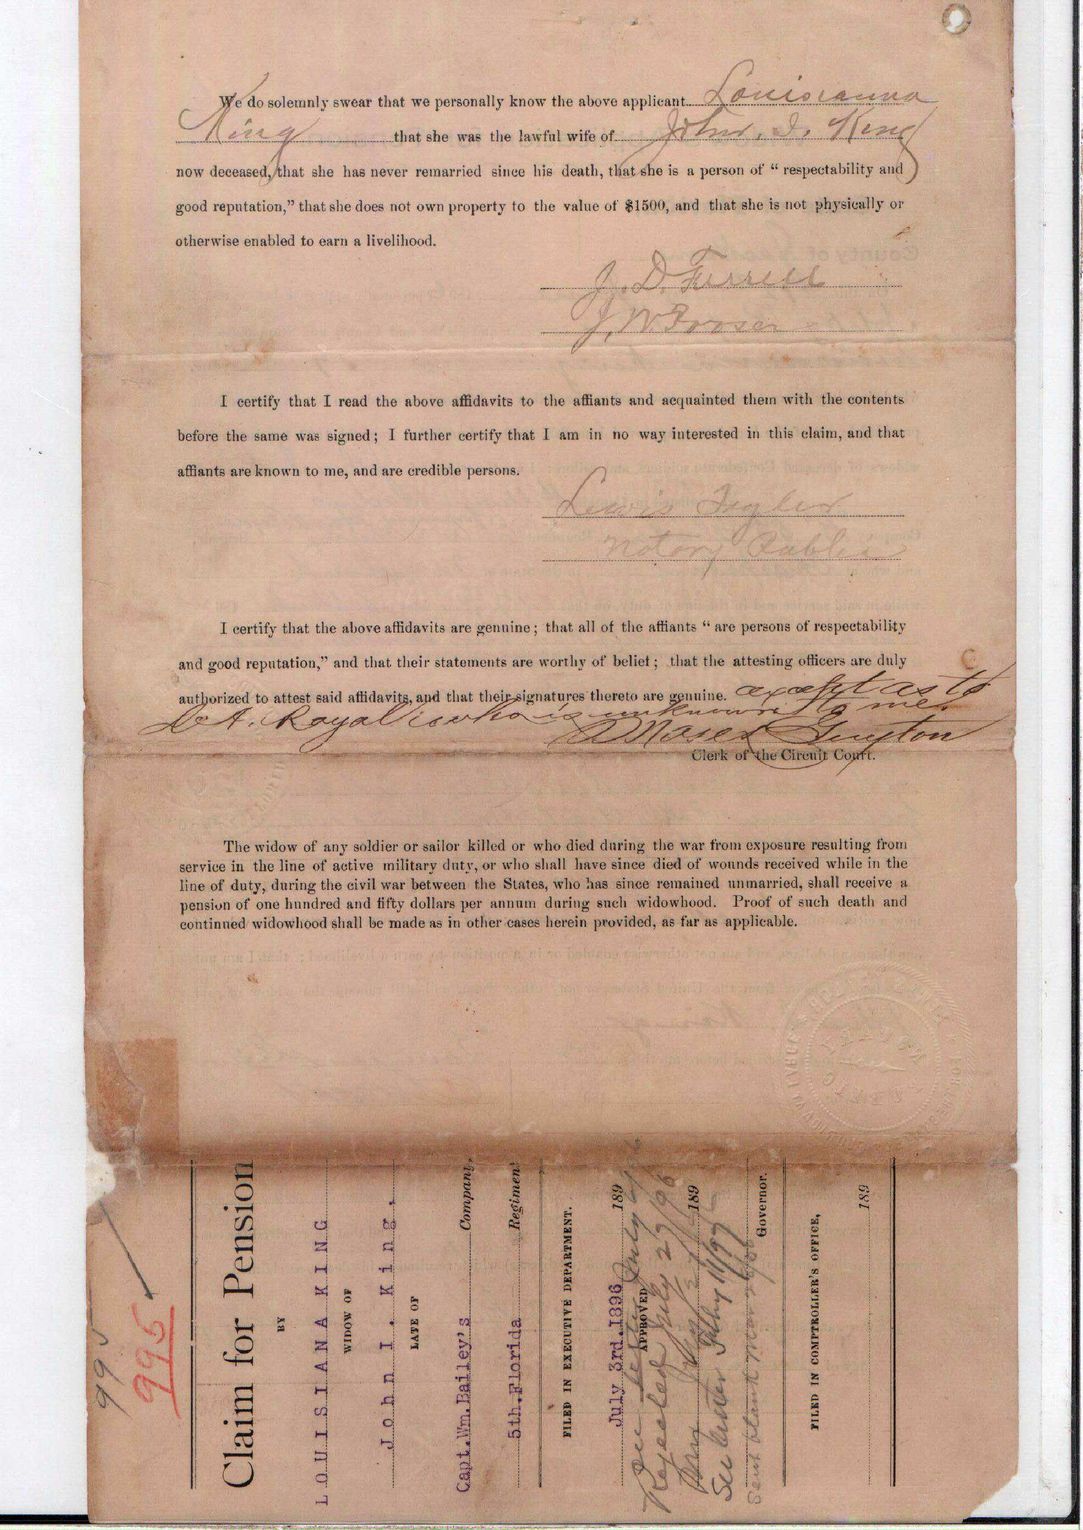 We do solemnly swear that we personally know the above applicant Louiseanna
King that she was the lawful wife of John. I. King
now deceased, that she has never remarried since his death, that she is a person of “ respectability and
good reputation,” that she does not own property to the value of $1500, and that she is not physically or
otherwise enabled to earn a livelihood.
J. D. Ferrell
J. W.
I certify that I read the above affidavits to the affiants and acquainted them with the contents
before the same was signed ; I further certify that I am in no way interested in this claim, and that
affiants are known to me, and are credible persons.
Lewis Taylor
Notary Public
I certify that the above affidavits are genuine ; that all of the affiants “ are persons of respectability
and good reputation,” and that their statements are worthy of belief ; that the attesting officers are duly
authorized to attest said affidavits, and that their signatures thereto are genuine. except as to
A. Royal who is unknown to me.
Moses Guyton
Clerk of the Circuit Court.
The widow of any soldier or sailor killed or who died during the war from exposure resulting from
service in the line of active military duty, or who shall have since died of wounds received while in the
line of duty, during the civil war between the States, who has since remained unmarried, shall receive a
pension of one hundred and fifty dollars per annum during such widowhood. Proof of such death and
continued widowhood shall be made as in other cases herein provided, as far as applicable.
995
995
Claim for Pension
BY
LOUISIANA KING
WIDOW OF
John I. King,
LATE OF
Capt.Wm.Bailey's Company,
5th.Florida Regiment
FILED IN EXECUTIVE DEPARTMENT.
July 3rd.1896 189
APPROVED
Rejected July 27/96
189
Sent blank
Governor.
FILED IN COMPTROLLER'S OFFICE,
189